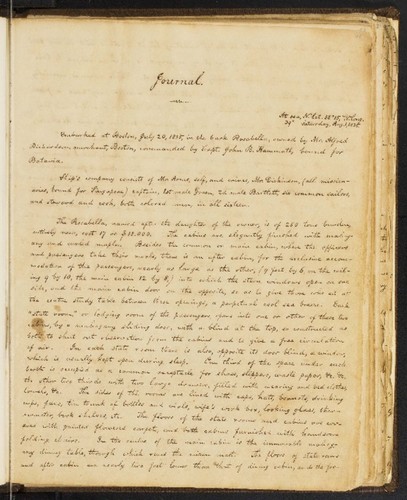 Journal.
At sea, N. lat.
Saturday, Aug.
Embarked at Boston, July 20, in the bark Rosabella, owned by Mr. Alfred
Richardson, merchant, Boston, commanded by Capt. John B. Hammatt, bound for
Batavia.
Ship's company consists of Mr. self, and wives, Mr. Dickinson, (all mission-
aries, bound for Singapore) captain, 1st mate Green, 2d mate Bartlett, six common sailors,
and steward and cook, both colored men, in all sixteen.
The Rosabella, named after the daughter of the owner, is of 263 tons burthen,
entirely new, cost 17 or $18.000. The cabins are elegantly finished with mahog-
any and maple. Besides the common or main cabin, where the officers
and passengers take their meals, there is an after cabin, for the exclusive accom-
modation of the passengers, nearly as large as the other,
into which the stern windows open on one
side, and the main cabin door on the opposite, so as to give them, who sit at
the centre study table between these openings, a perpetual cool sea breeze. Each
"state room" or lodging room of the passengers opens into one or other of these two
cabins, by a mahogany sliding door, with a blind at the top, so constructed as
both to shut out observation from the cabins and to give a free circulation
of air. In each state room there is also, opposite its door blind, a window,
which is usually kept open during sleep. One third of the space under each
berth is occupied as a common receptacle for shoes, slippers, waste paper, &c. &c.
the other two thirds with two large drawers, filled with wearing and bed clothes,
books, &c. The sides of the rooms are lined with caps, hats, bonnets, dressing
caps, fans, tin trunk of bottles and vials, wife's work box, looking glass, thermo-
mometer, book shelves, etc. The floors of the state rooms and cabins are cov-
ered with painted flowered carpet, and both cabins furnished with
folding chairs. In the centre of the main cabin is the immovable mahoga-
ny dining table, through which runs the mizzen mast. The floors of state rooms
and after cabin are nearly two feet lower than that of dining cabin, and the for-